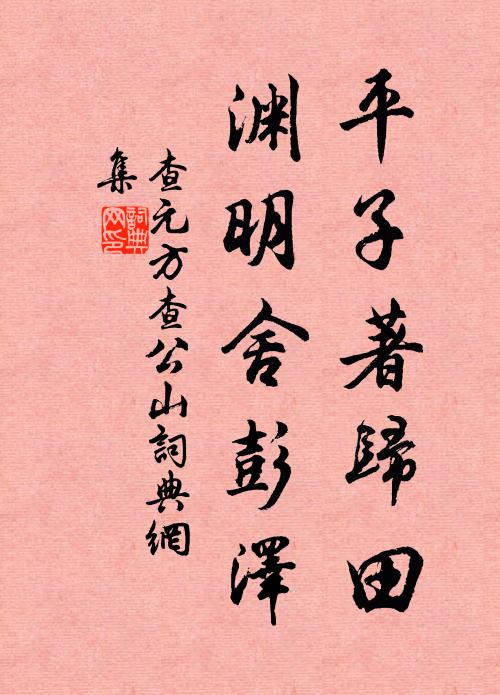 平子著歸田
渊明舍彭澤
查元方查公山詞典網
集
詞典
网印